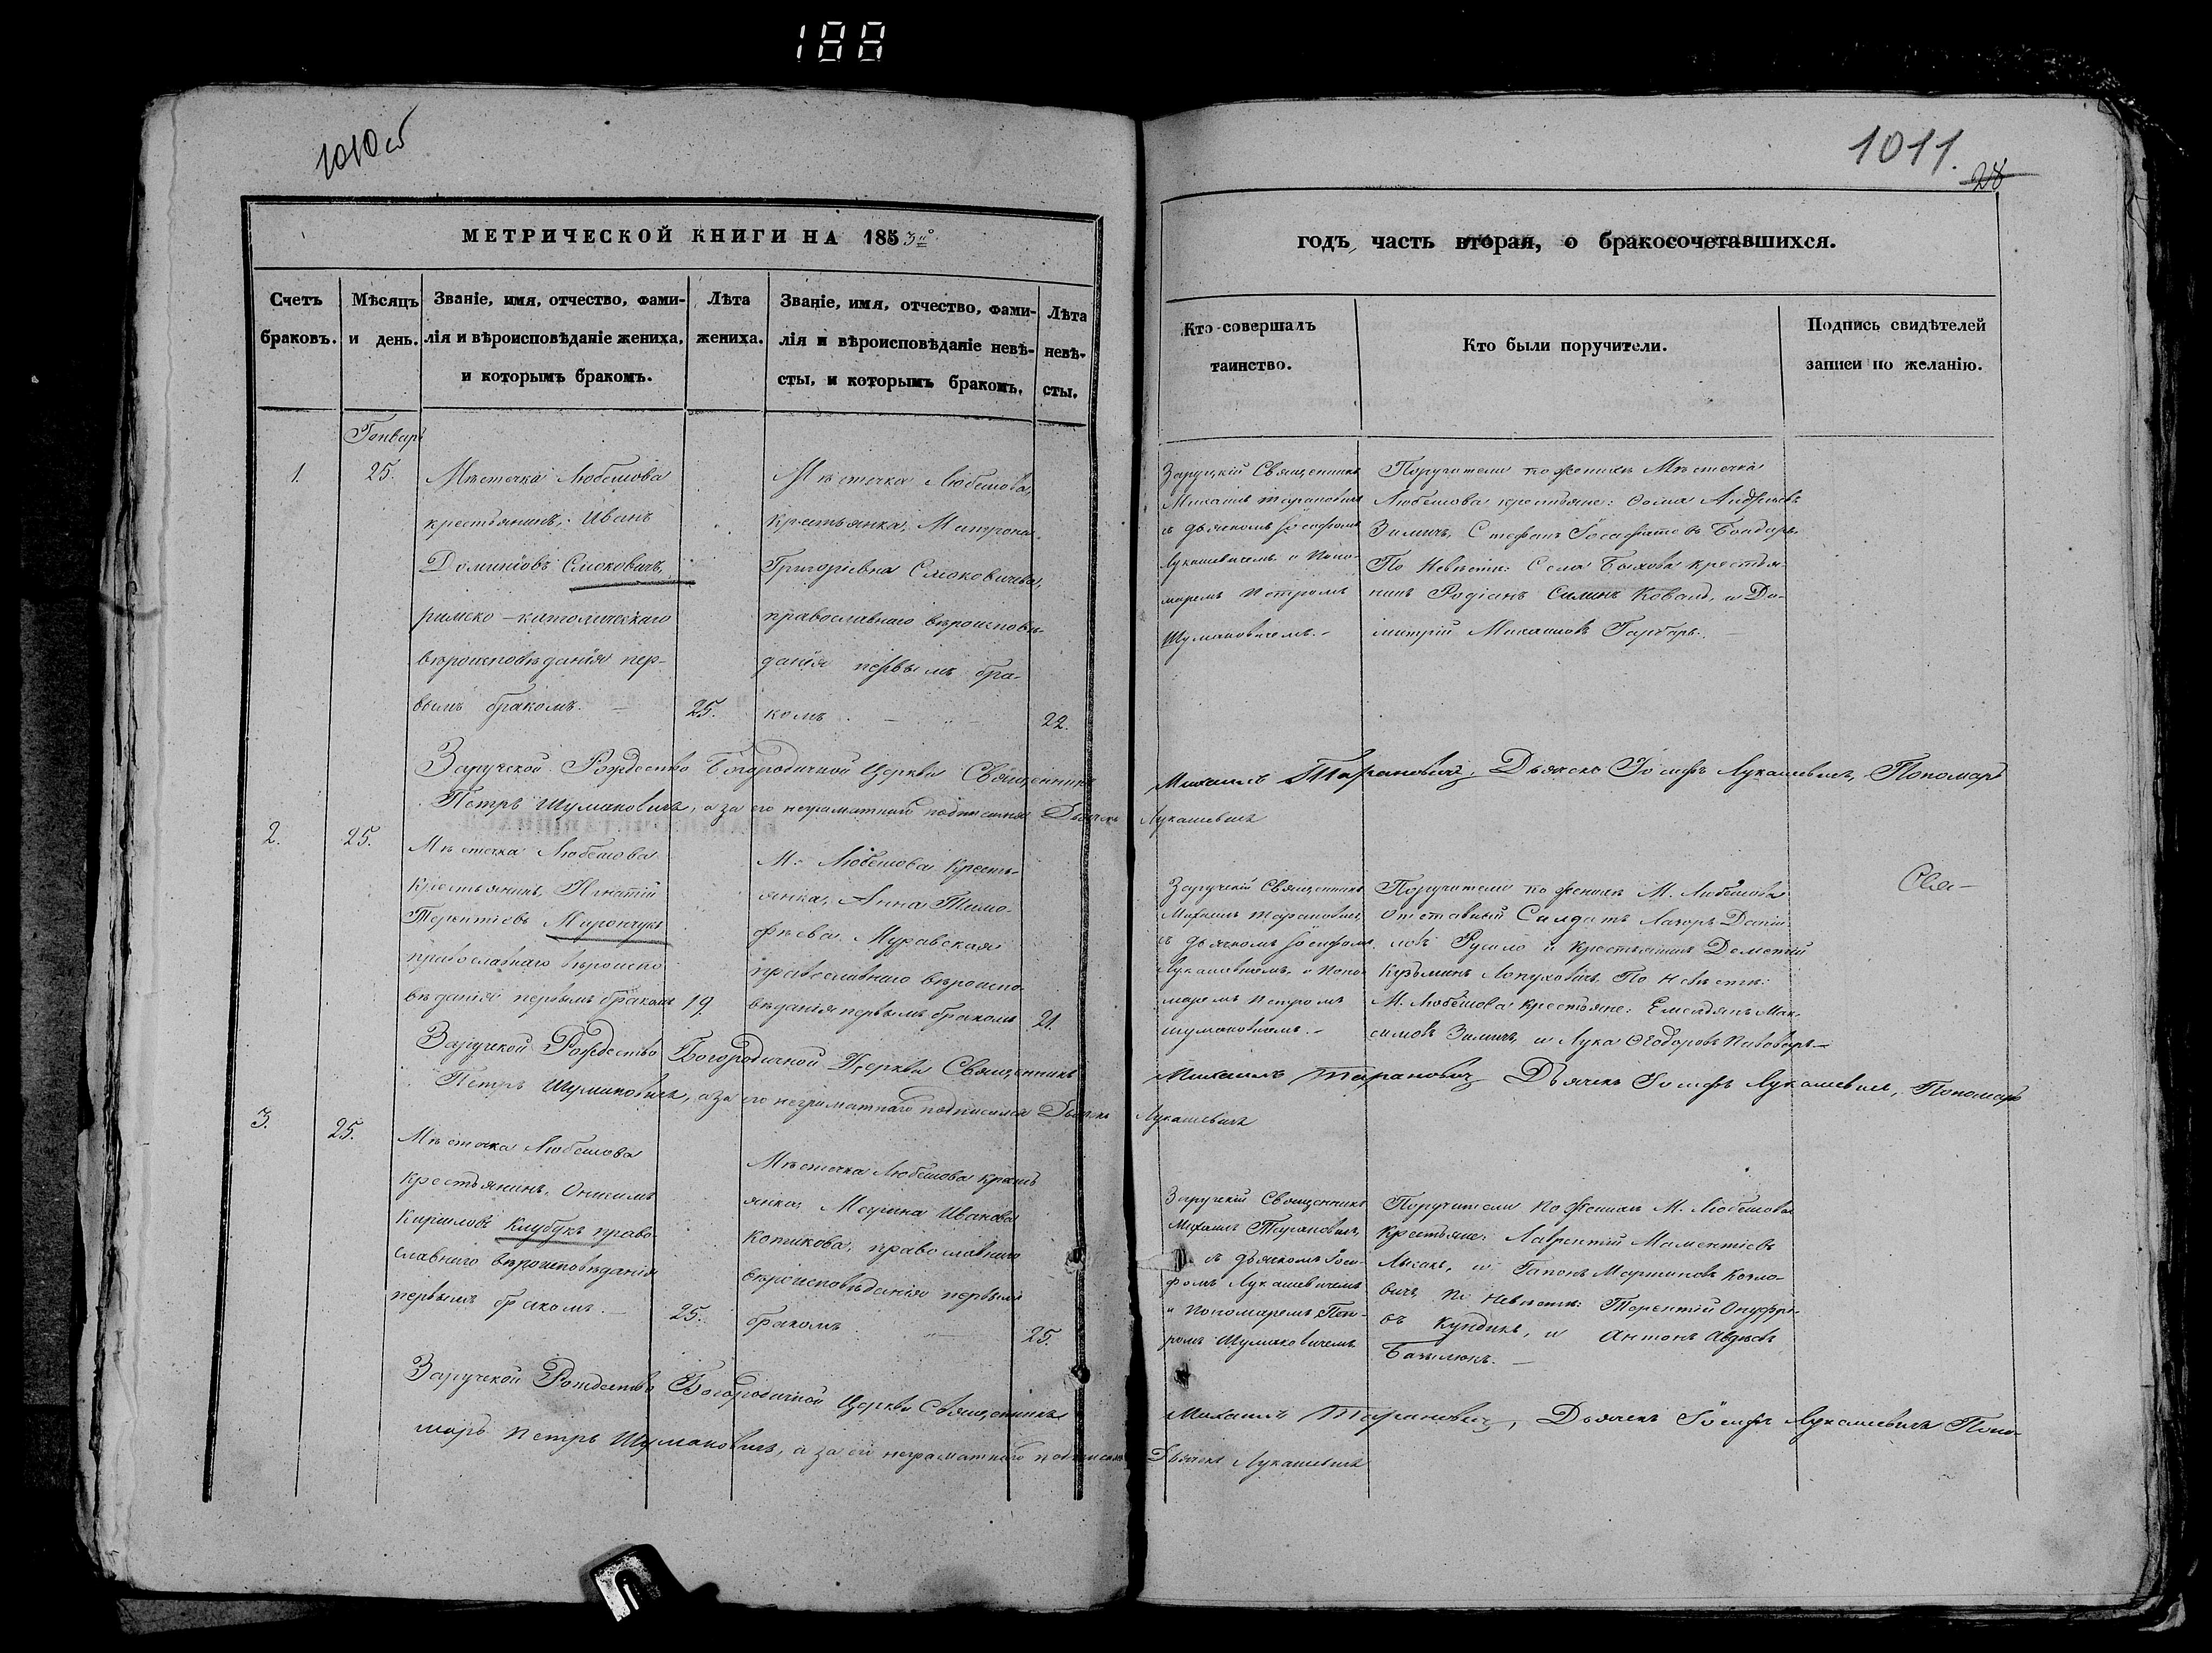 188
1010 об
1011.
28
МЕТРИЧЕСКОЙ КНИГИ НА 1853го
годъ, часть вторая, о бракосочетавшихся.
Счетъ
браковъ.
Мѣсяцъ
и день.
Званіе, имя, отчество, фами-
лія и вѣроисповѣданіе жениха,
и которымъ бракомъ.
Лѣта
жениха.
Званіе, имя, отчество, фами-
лія и вѣроисповѣданіе невѣ-
сты, и которымъ бракомъ.
Лѣта
невѣ-
сты.
Кто совершалъ
таинство.
Кто были поручители.
Подпись свидѣтелей
записи по желанію.
1.
25.
Мѣстечка Любешова
крестьянинъ, Иванъ
Доминіовъ Смоковичъ,
римско-католическаго
вѣроисповѣданія пер-
вымъ бракомъ. —
25.
Мѣстечка Любешова,
крестьянка, Матрона
Григоріевна Смоковичева,
православнаго вѣроисповѣ-
данія первымъ бра-
комъ
22.
Заруцкій Священникъ
Михаилъ Тарановичъ
съ дьячкомъ Іосифомъ
Лукашевичемъ и Поно-
маремъ Петромъ
Шумаковичемъ. -
Поручители по женихѣ Мѣстечка
Любешова крестьяне: Сома Андреевъ
Зиличъ, Стефанъ Іосафатовъ Бондарь.
По Невѣстѣ: Села Быхова крестья-
нинъ Родіонъ Силинъ Коваль, и Ди-
митрій Михаиловъ Гарбаръ. —
Заручской Рождество Богородичной Церкви Священникъ
Михаилъ Тарановичъ, Дьячекъ Іосифъ Лукашевичъ, Пономарь
Петръ Шумаковичъ, а за его неграматнаго подписался Дьячекъ
Лукашевичъ
2.
25.
Мѣстечка Любешова
крестьянинъ, Игнатій
Терентіевъ Мирончукъ
православнаго вѣроиспо
вѣданія первымъ бракомъ
19.
М. Любешова кресть-
янка, Анна Тимо-
фѣева Муравская
православнаго вѣроиспо-
вѣданія первымъ бракомъ
21.
Заручскій Священникъ
Михаилъ Тарановичъ,
съ дьячкомъ Іосифомъ
Лукашевичемъ и Поно
маремъ Петромъ
Шумаковичемъ. -
Поручители по женихѣ М. Любешова
отставный Солдатъ Лазорь Дани-
ловъ Русило и крестьянинъ Дометій
Кузьминъ Лопуховичъ, По Невѣстѣ:
М. Любешова крестьяне: Емельянъ Мак-
симовъ Зиличъ, и Лука Ѳеодоровъ Пивоваръ —
Свя-
Заручской Рождество Богородичной Церкви Священникъ
Михаилъ Тарановичъ Дьячекъ Іосифъ Лукашевичъ, Пономарь
Петръ Шумаковичъ, а за его неграматнаго подписался Дьячекъ
Лукашевичъ
3.
25.
Мѣстечка Любешова
крестьянинъ, Онисимъ
Кириловъ Клубукъ право-
славнаго вѣроисповѣданія
первымъ бракомъ. —
25.
Мѣстечка Любешова кресть
янка, Марина Иванова
Котикова, православнаго
вѣроисповѣданія первымъ
бракомъ
25.
Заручскій Священникъ
Михаилъ Тарановичъ,
съ дьячкомъ Іоси-
фомъ Лукашевичемъ
и пономаремъ Пет-
ромъ Шумаковичемъ
Поручители по женихѣ М. Любешова
крестьяне: Лаврентій Маментіевъ
Лысакъ, и Гапонъ Мартиновъ Козло-
вичъ, По Невѣстѣ: Терентій Онуфрі-
въ Кундикъ, и Антонъ Авдѣевъ
Базылюкъ. —
Заручской Рождество Богородичной Церкви Священникъ
Михаилъ Тарановичъ, Дьячекъ Іосифъ Лукашевичъ Поно-
марь Петръ Шумаковичъ, а за его неграматнаго подписался
Дьячекъ Лукашевичъ